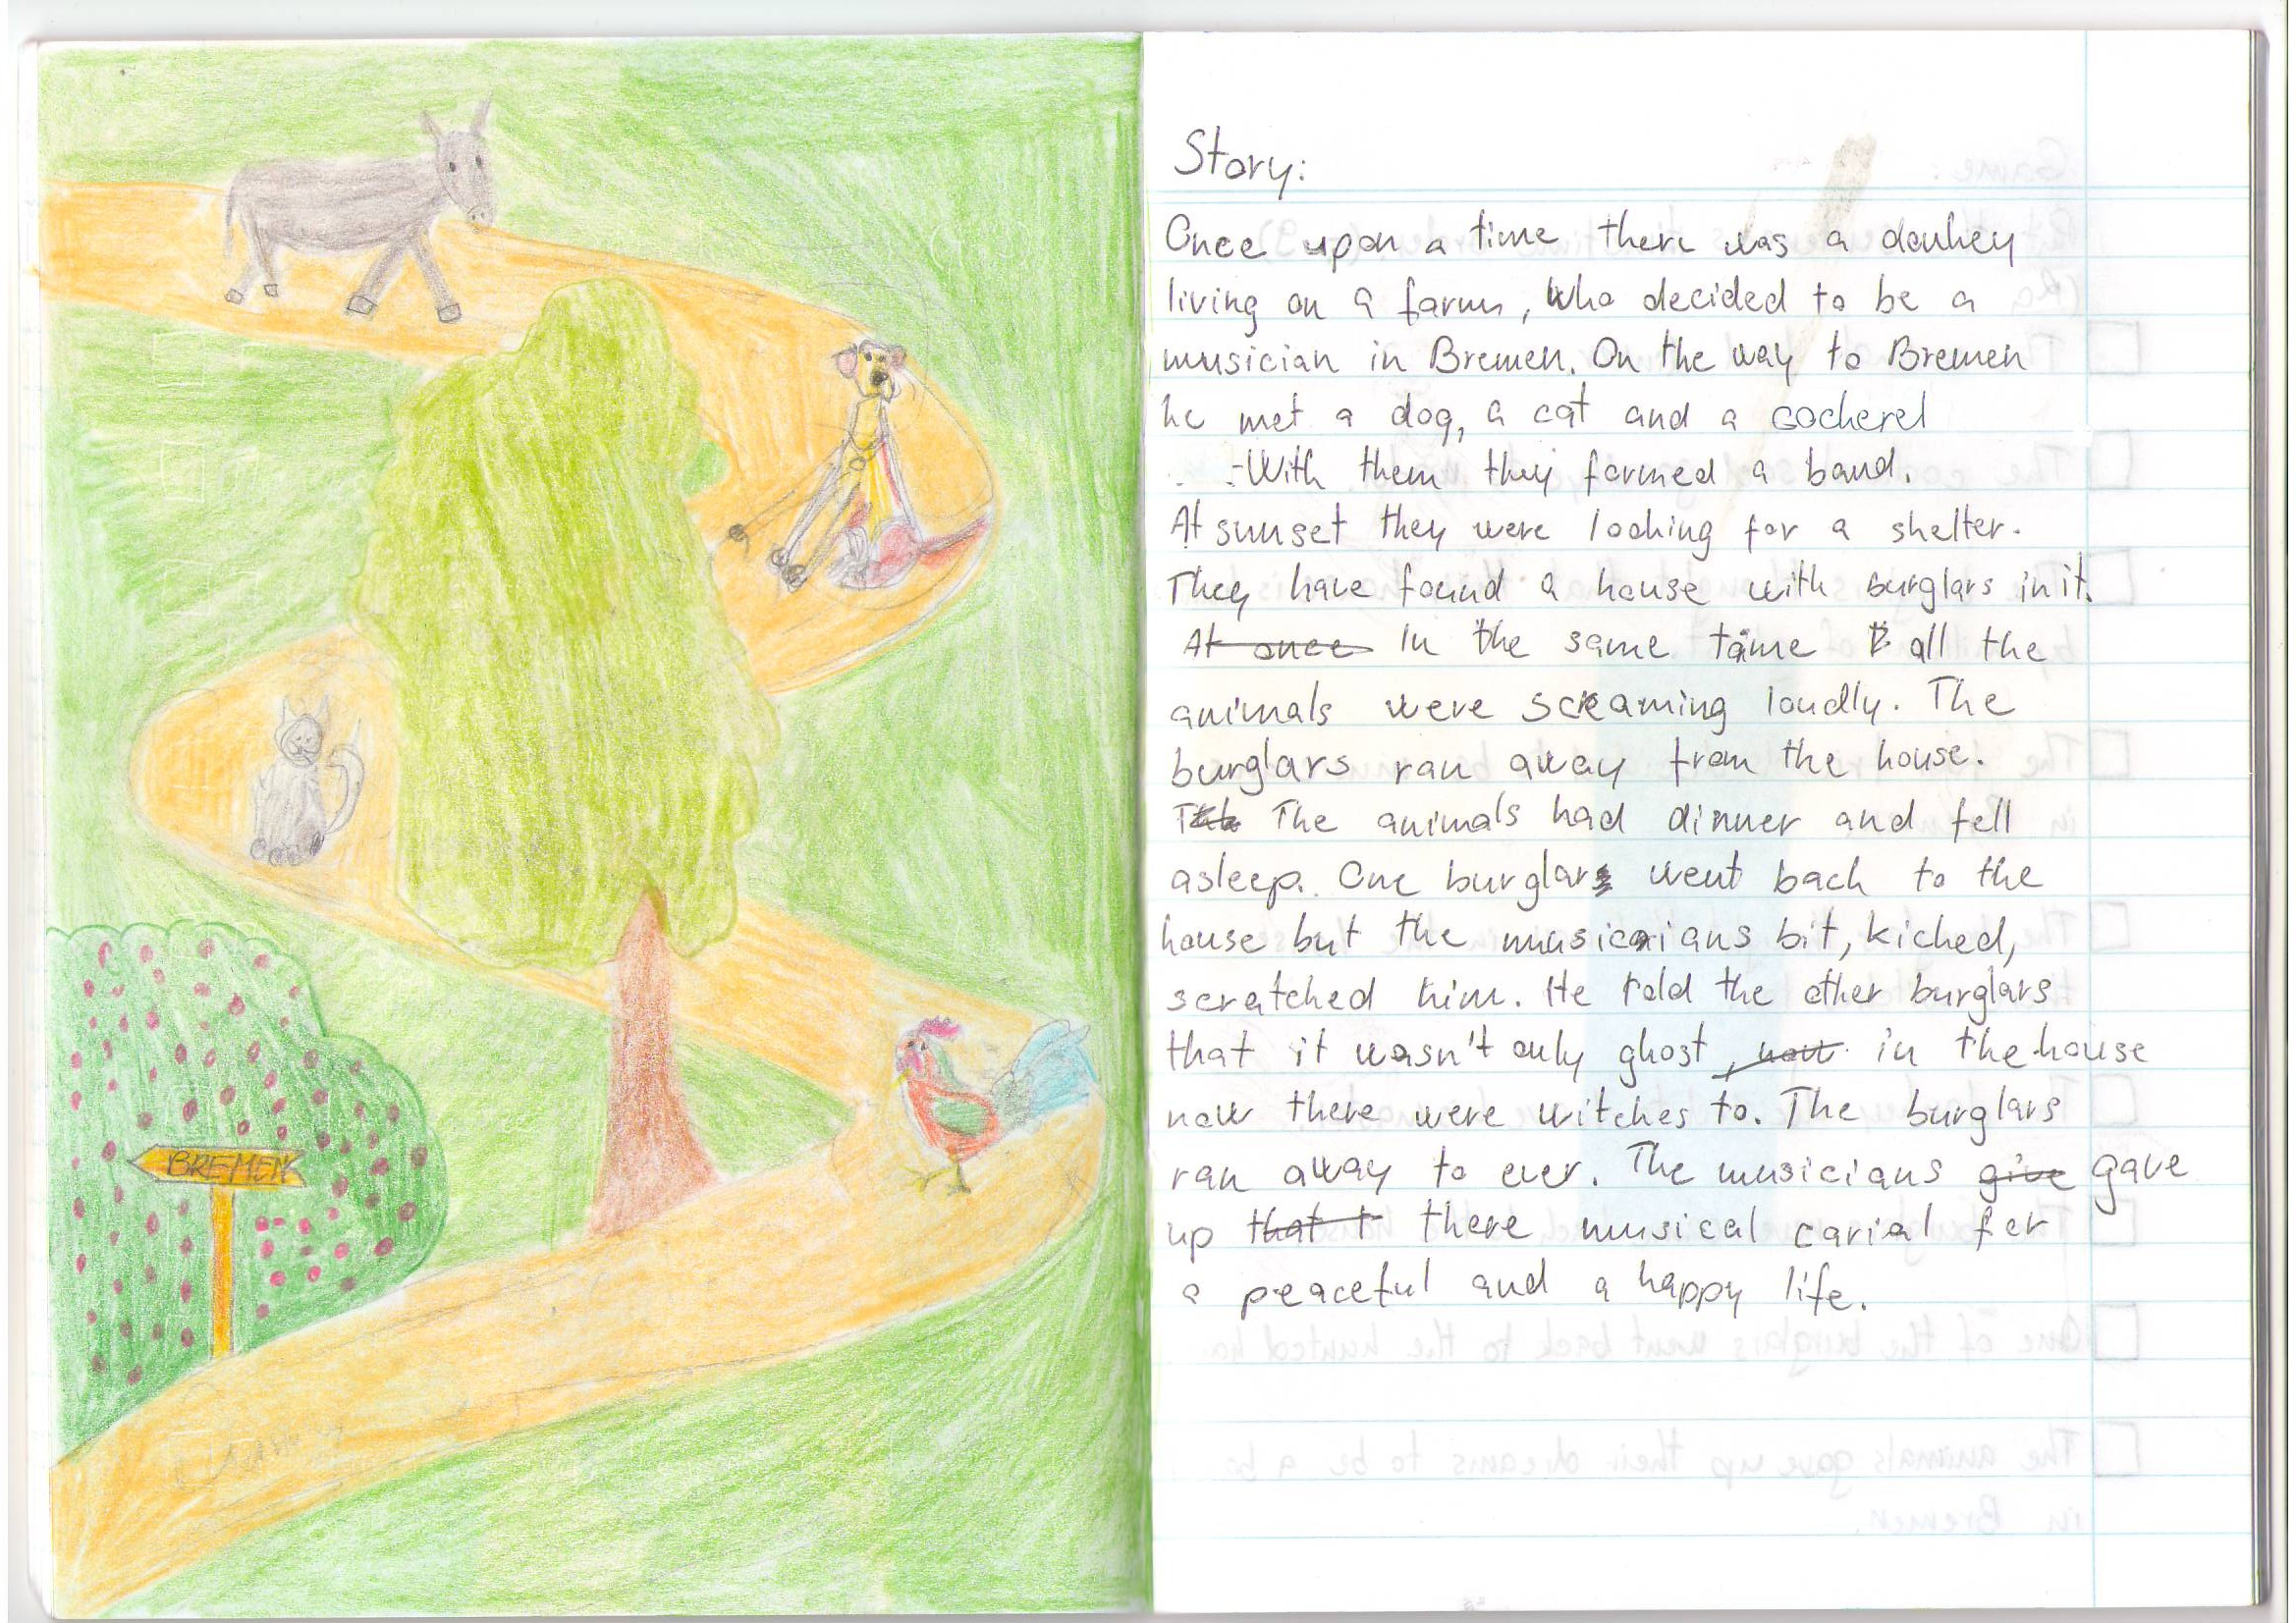 BREMEN
Story:
Once upon a time there was a donkey
living on a farm, who decided to be a
musician in Bremen. On the way to Bremen
he met a dog, a cat and a cockerel
-With them they formed a band.
At sunset they were looking for a shelter.
They have found a house with burglars in it.
At once In the same time all the
animals were screaming loudly. The
burglars ran away from the house.
The animals had dinner and fell
asleep. One burglar went back to the
house but the musicians bit, kicked,
scratched him. He told the other burglars
that it wasn't only ghost, now in the house
now there were witches to. The burglars
ran away to ever. The musicians give gave
up that t there musical carial for
a peaceful and a happy life.